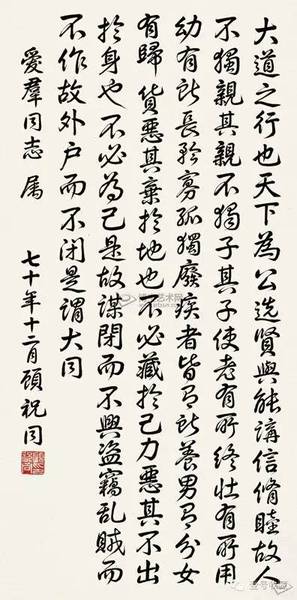 大道之行也天下為公選賢與能講信脩睦故人
不獨親其親不獨子其子使老有所終壯有所用
幼有所長矜寡孤獨廢疾者皆有所養男有分女
有歸貨惡其棄於地也不必藏於己力惡其不出
於身也不必為己是故謀閉而不興盜竊乱賊而
不作故外户而不閉是謂大同
愛羣同志属
七十年十二月顧祝同